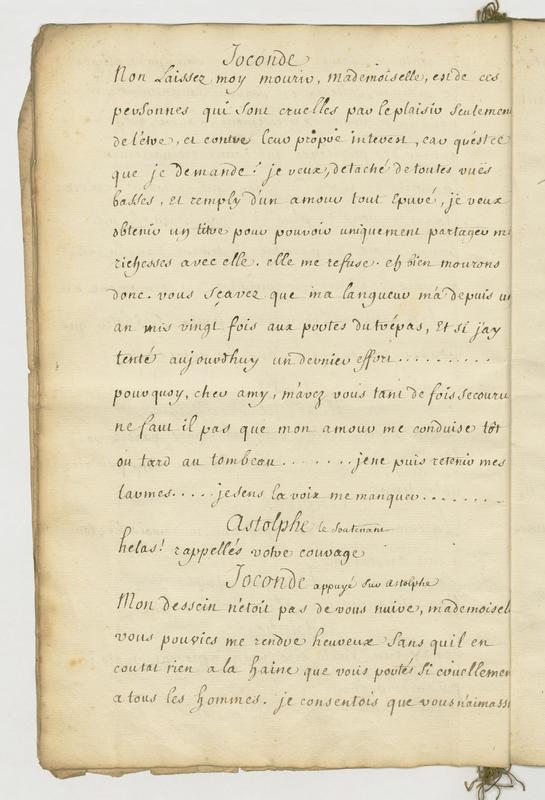 Joconde
Non Laissez moy mourir, mademoiselle, est de ces
personnes qui sont cruelles par le plaisir seulement
de l'étre, et contre leur propre interest, car quést ce
que je demande? je veux, detaché de toutes vuës
basses, Et remply d'un amour tout épuré, je veux
obtenir un titre pour pouvoir uniquement partager m
richesses avec elle. elle me refuse. eh bien mourons
donc. vous sçavez que ma langueur m'a depuis un
an mis vingt fois aux portes du trépas, Et si j'ay
tenté aujourdhuy un dernier effort ..........
pourquoy, cher amy, m'avez vous tant de fois secouru
ne faut il pas que mon amour me conduise tôt
ou tard au tombeau ....... je ne puis retenir mes
larmes..... je sens la voix me manquer ........
Astolphe le soutenant
helas! rappellés votre courage
Joconde appuyé sur astolphe
Mon dessein n'étoit pas de vous nuire, mademoisell
vous pouvies me rendre heureux sans quil en
coutat rien a la haine que vous portés si cruellemen
a tous les hommes. je consentois que vous n'aimass